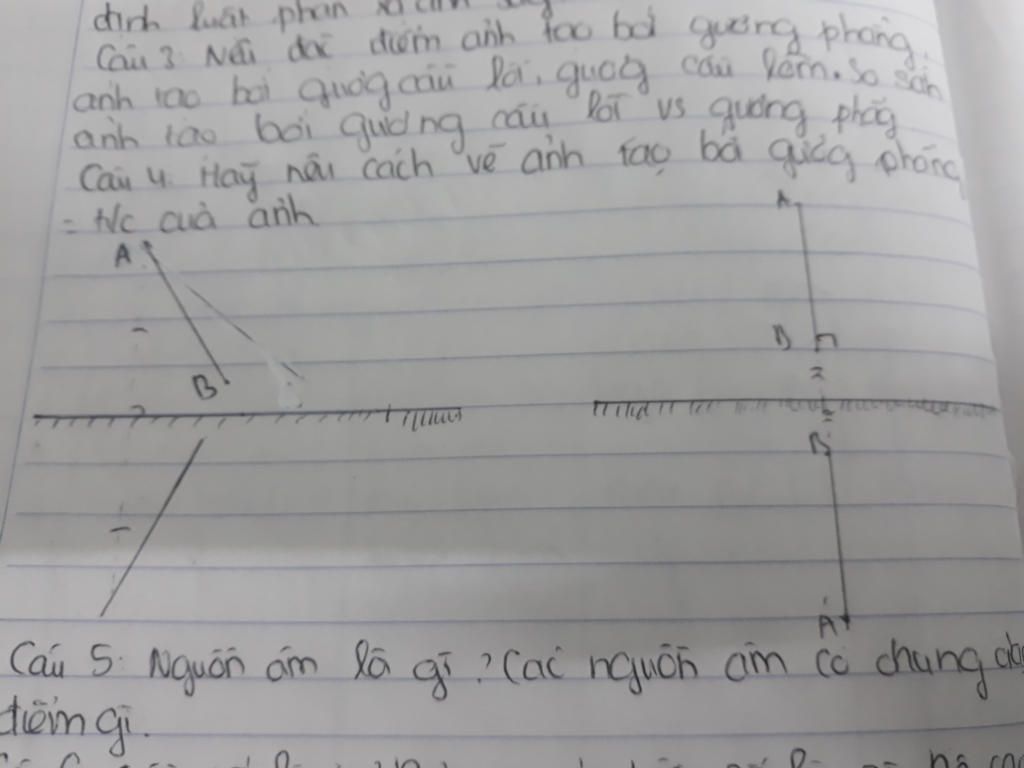 định luật phản xạ
Câu 3: Nêu đặc điểm ảnh tạo bởi gương phẳng,
ảnh tạo bởi gương cầu lồi, gương cầu lõm. So sánh
ảnh tạo bởi gương cầu lồi vs gương phẳg
Câu 4. Hãy nêu cách vẽ ảnh tạo bởi gươg phẳng
= t/c của ảnh
A
A
B
B
B'
A'
Câu 5: Nguồn âm là gì? Các nguồn âm có chung
điểm gì.